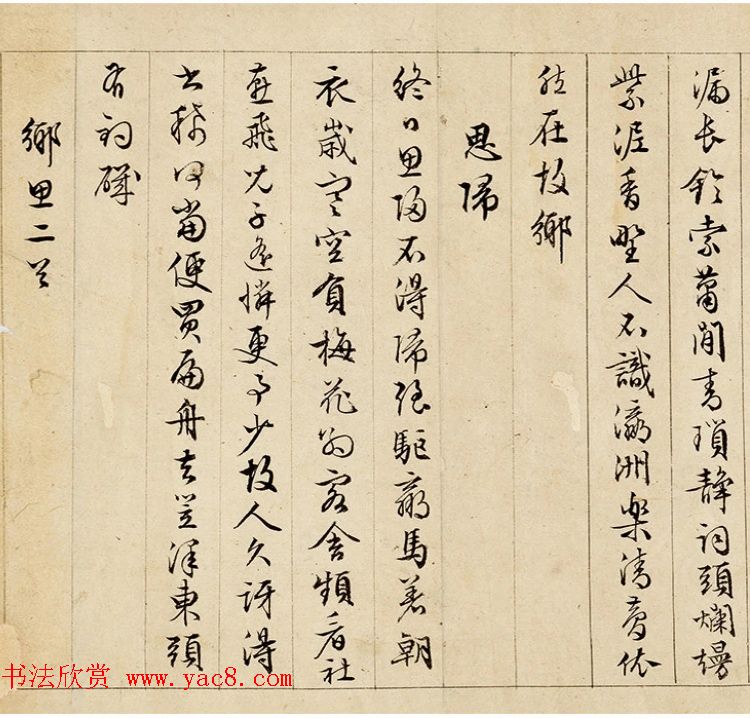 漏長鈴索蕭閒青瑣靜詞頭爛熳
紫泥香野人不識瀛洲樂清夢依
然在故鄉
思歸
終日思歸不得歸強驅羸馬著朝
衣歲寒空負梅花約客舍頻看社
燕飛兒子遙憐更事少故人久訝得
書稀何當便買扁舟去笠澤東頭
有釣磯
鄉思二首
书法欣赏 www.yac8.com